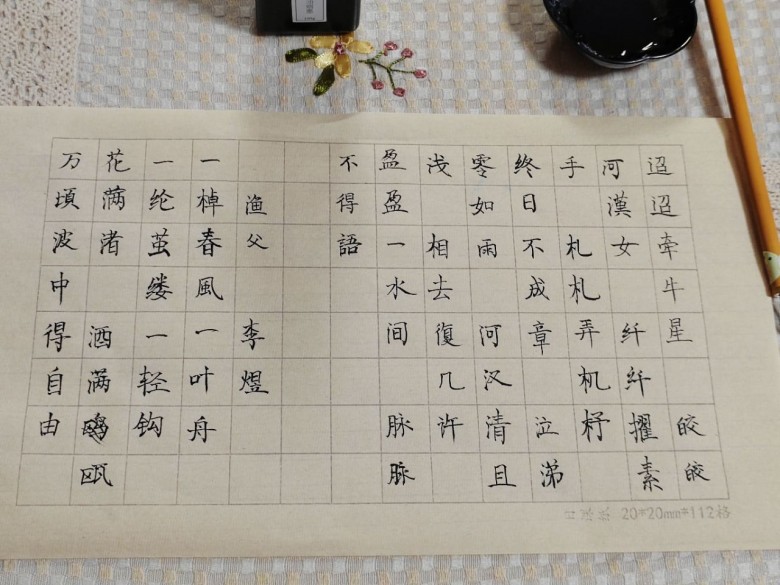 迢迢牵牛星 皎皎
河漢女 纤纤擢素
手 札札弄机杼
终日不成章 泣涕
零如雨 河汉清且
浅 相去復几许
盈盈一水间 脉脉
不得語
渔父 李煜
一棹春風一叶舟
一纶茧缕一轻钩
花满渚 酒满瓯
万頃波中得自由
20*20mm=112格